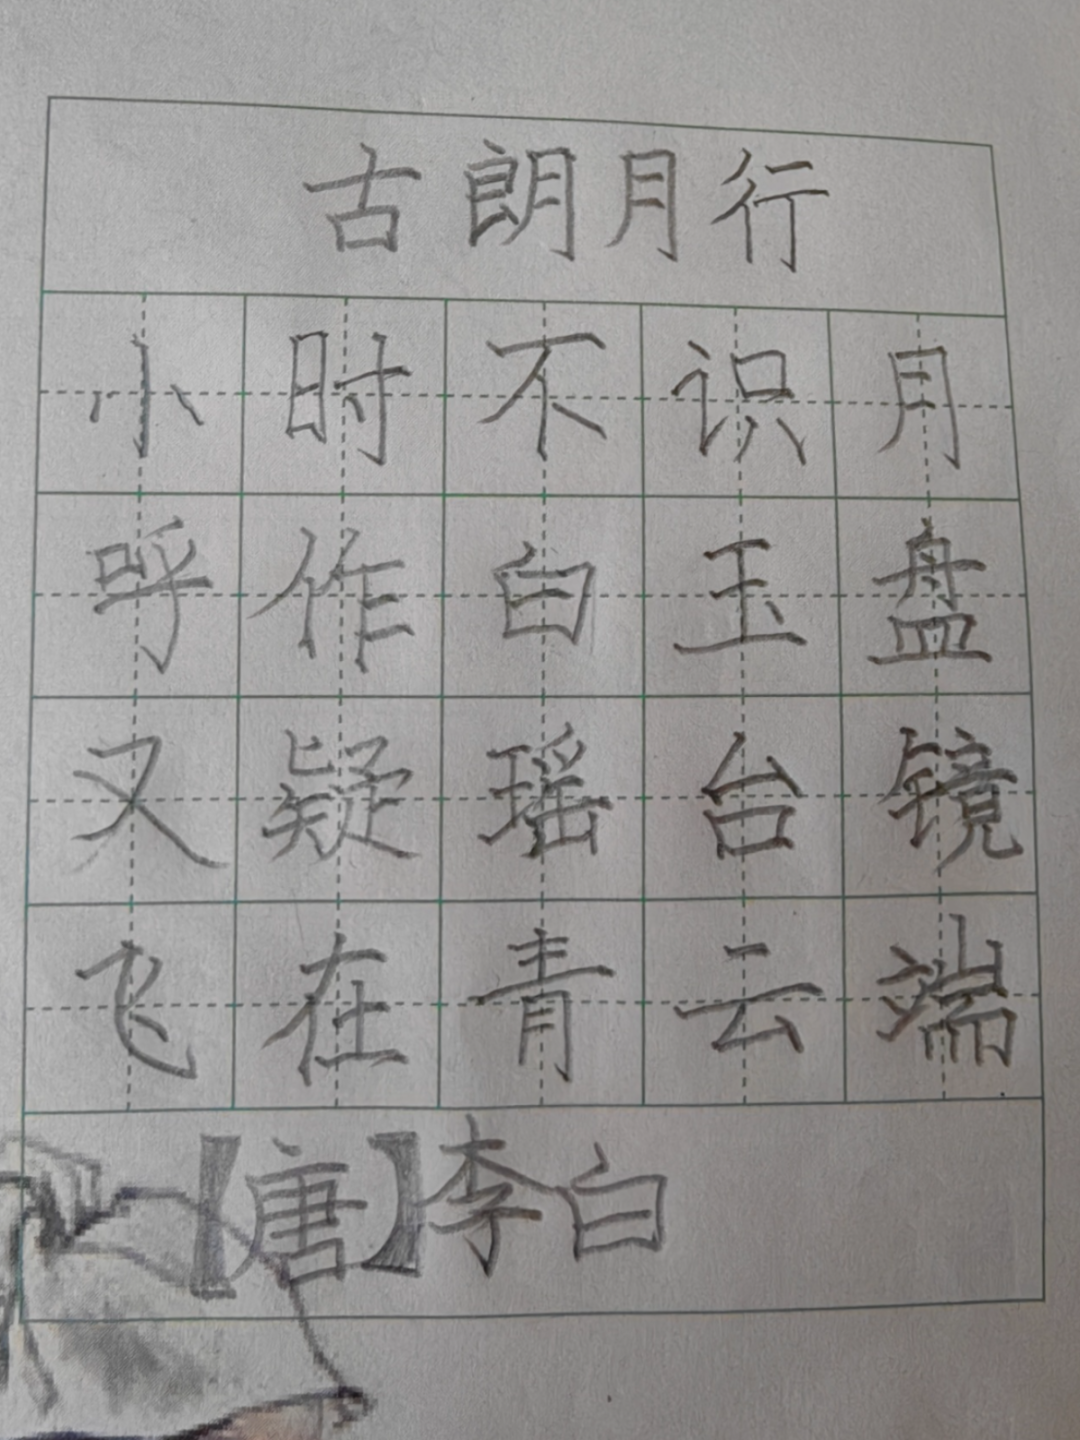 古朗月行
小时不识月
呼作白玉盘
又疑瑶台镜
飞在青云端
【唐】李白